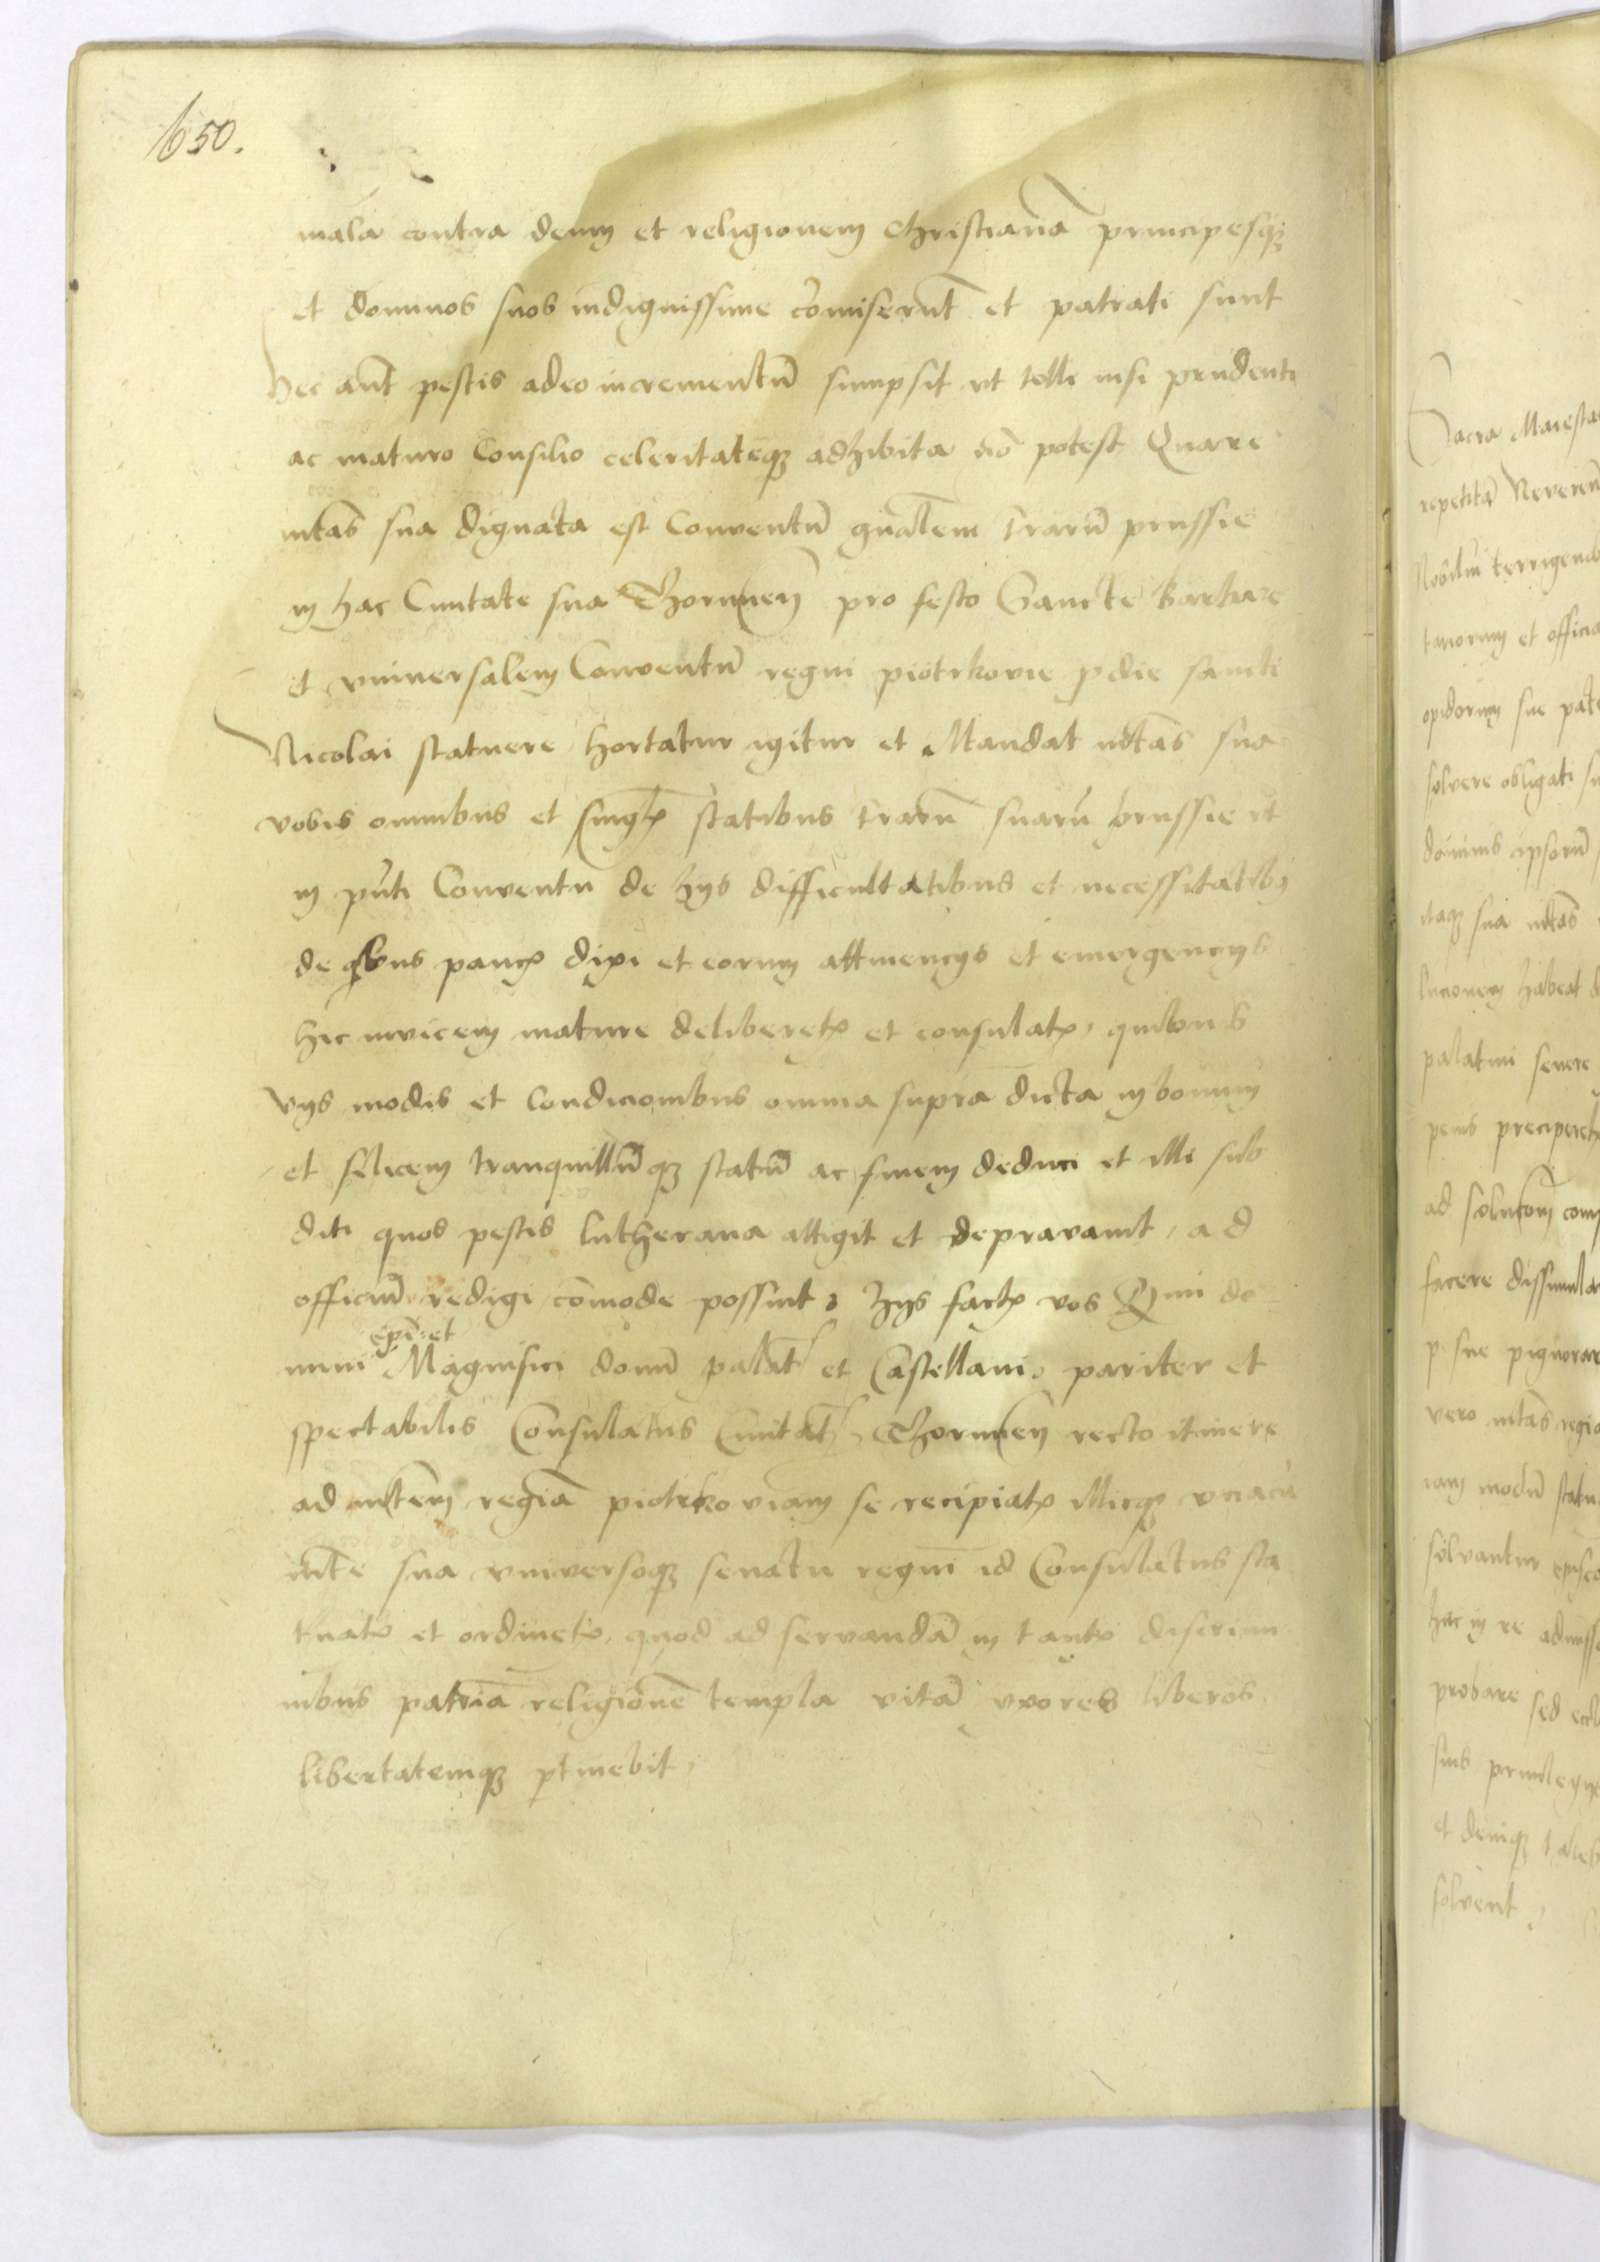 650.
mala contra deum et religionem Christianā principesqꝫ
et dominos suos indignissime cōmiserūt et patrati sunt
hec aūt pestis adeo incrementū sumpsit ut tolli nisi prudenti
ac maturo Consilio celeritateqꝫ adhibita nō potest Quare
mtas sua dignata est Conventū gn̄alem trarū prussie
in hac Civitate sua Thorunen̄ pro festo Sancte Barbare
et vniversalem Conventū regni piotrkovie p̄die sancti
Nicolai statuere hortatur igitur et Mandat mtas sua
vobis omnibus et singlꝭ statibus trarū suarū prussie ut
in pn̄ti Conventu de hijs difficultatibus et necessitatibꝫ
de qbus paucꝭ dixi et eorum attinencijs et emergencijs
hic invicem mature deliberetꝭ et consulatꝭ, quibus
vijs modis et Condicionibus omnia supra dicta in bonum
et felicem tranquillūqꝫ statū ac finem deduci et illi sub
diti quos pestis lutherana attigit et depravavit, ad
officiū redigi cōmode possint, hijs factꝭ vos R̄mi do
mini ep̄i et Magnifici domī palat̄ et Castellani pariter et
spectabilis Consulatus Civitat̄ Thorunen̄ recto itinere
ad mtem regiā piotrkoviam se recipiatꝭ illicqꝫ vnacū
mte sua vniversoqꝫ senatu regni id Consulatus sta
tuatꝭ et ordinetꝭ, quod ad servandā in tantꝭ discrimi
nibus patriā religionē templa vitā vxores liberos
libertatemqꝫ ptinebit,
Sacra Maiesta
repetitā Reveren
Nobiliū terrigena
tanorum et officia
opidorum sue pate
solvere obligati su
dominis ipsorū
itaqꝫ sua mtas
lucionem habeat
palatini severe
penis preciperetꝭ
ad solucōm com
facere dissimula
p sue pignorar
vero mtas regia
iam modū statu
solvantur episco
hac in re admisse
probare sed eccl
suis privilegijs
et deniqꝫ tales
solvent,